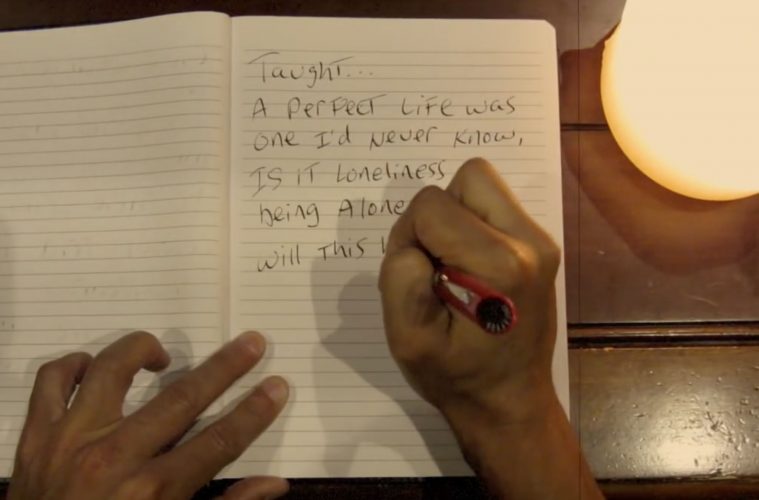 Taught...
A Perfect Life was
one I'd Never Know,
IS IT Loneliness
being Alone
will This